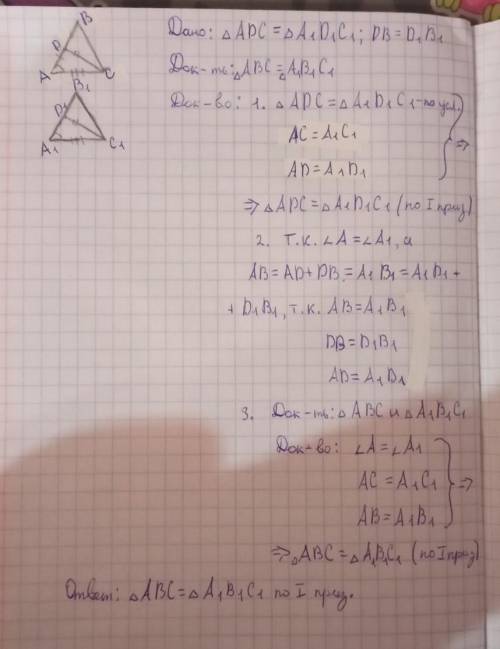 B
D
A
C
Дано: △ADC = △A₁D₁C₁; DB = D₁B₁
Док-ть: △ABC = △A₁B₁C₁
B₁
D₁
A₁
C₁
Док-во: 1. △ADC = △A₁D₁C₁ - по усл.
AC = A₁C₁
AD = A₁D₁
⇒
⇒ △ADC = △A₁D₁C₁ (по I приз)
2. Т.к. ∠A = ∠A₁, а
AB = AD + DB = A₁B₁ = A₁D₁ +
+ D₁B₁, т.к. AB = A₁B₁
DB = D₁B₁
AD = A₁D₁
3. Док-ть: △ABC и △A₁B₁C₁
Док-во: ∠A = ∠A₁
AC = A₁C₁ ⇒
AB = A₁B₁
⇒ △ABC = △A₁B₁C₁ (по I приз)
Ответ: △ABC = △A₁B₁C₁ по I приз.